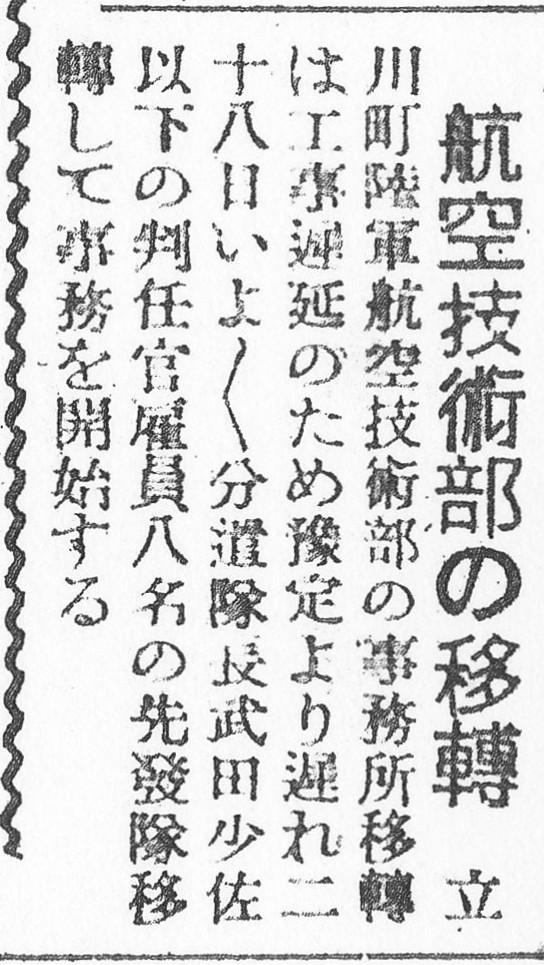 航空技術部の移轉　立
川町陸軍航空技術部の事務所移轉
は工事遲延のため豫定より遲れ二
十八日いよ〱分遣隊長武田少佐
以下の判任官雇員八名の先發隊移
轉して事務を開始する